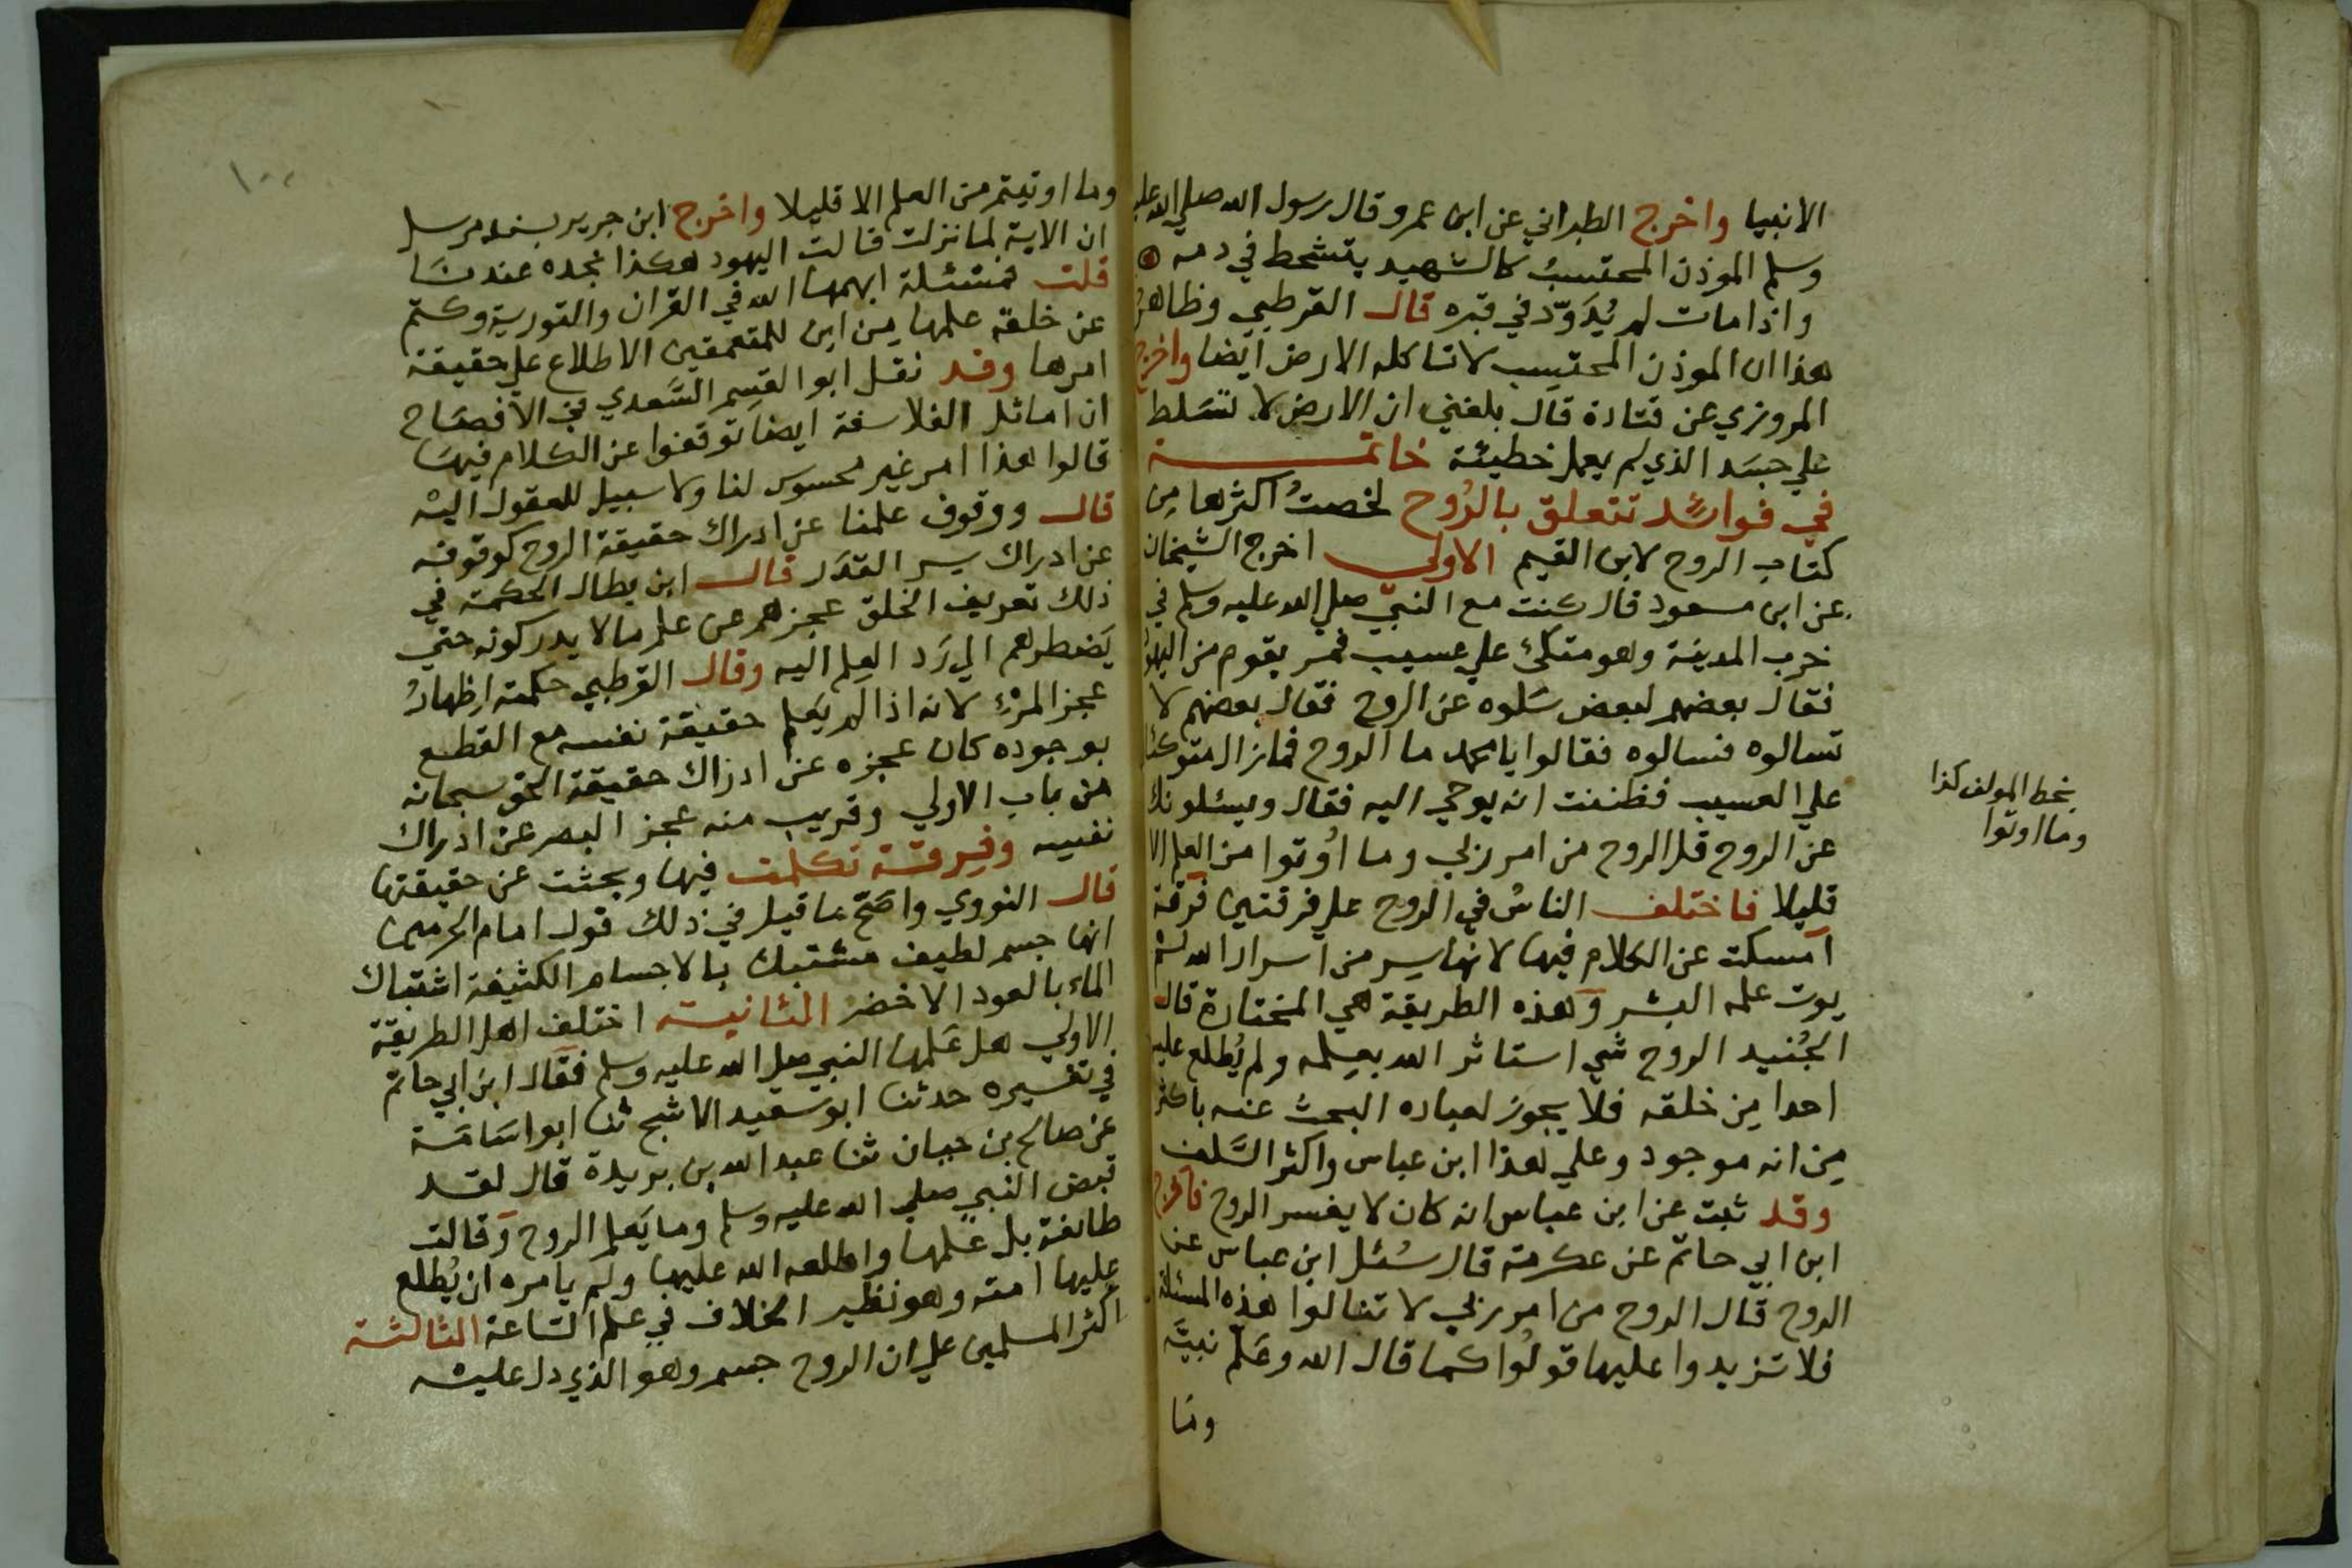 الانبيا واخرج الطبراني عن ابن عمرو قال رسول الله صلي الله عليه
وسلم الموذن المحتسبُ كالشهيد يتشحط في دمه
واذا مات لم يُدَوّد في قبره قال القرطبي وظاهرُ
هذا ان الموذن المحتسِب لا تاكله الارض ايضا واخرج
المروزي عن قتادة قال بلغني ان الارض لا تتسلط
علي جسَد الذي لم يعمل خطيئة خاتمـــة
في فوائد تتعلق بالرُوح لخصتُ اكثرها من
كتاب الروح لابن القيم الاولي اخرج الشيخان
عن ابن مسعود قال كنت مع النبي صلي الله عليه وسلم في
خرب المدينة وهو متكئ علي عسيب فمر بقوم من اليهود
فقال بعضهم لبعض سَلوه عن الروح فقال بعضهم لا
تسالوه فسالوه فقالوا يا محمد ما الروح فما زال متوكئا
علي العسيب فظننت انه يوحي اليه فقال ويسئلونك
عن الروح قل الروح من امر ربي وما اُوتوا من العلم الا
قليلا فاختلف الناسُ في الروح علي فرقتين فرقة
امسكت عن الكلام فيها لانها سر من اسرار الله لم
يوت علمه البشر وهذه الطريقة هي المختارة قال
الجُنيد الروح شي استاثر الله بعلمه ولم يُطلع عليه
احدا مِن خلقه فلا يجوز لعباده البحث عنه باكثر
مِن انه موجود وعلي هذا ابن عباس واكثر السَّلف
وقد ثبت عن ابن عباس انه كان لا يفسر الروح فاخرج
ابن ابي حاتم عن عكرمة قال سُئل ابن عباس عن
الروح قال الروح من امر ربي لا تنالوا هذه المسئلة
فلا تزيدوا عليها قولُوا كما قال الله وعَلم نبيَّه
ومَا
بخط المولف كذا
وما اوتوا
وما اوتيتم من العلم الا قليلا واخرج ابن جرير بسند مرسل
ان الاية لما نزلت قالت اليهود هكذا نجده عندنَا
قلت فمسئلة ابهمها الله في القران والتورية وكتم
عن خلقه علمها مِن اين للمتعمقين الاطلاع علي حقيقة
امرها وقد نقل ابو القسِم السَّعدي في الافصَاح
ان اماثل الفلاسفة ايضا توقفوا عن الكلام فيهَا
قالوا هذا امر غير محسوس لنا ولا سبيل للعقول اليْه
قال ووقوف علمنا عن ادراك حقيقة الروح كوقوفه
عن ادراك سر القدَر قال ابن بطال الحكمة في
ذلك تعريف الخلق عجزهم عن علم ما لا يدركونه حتي
يَضطرهم الي رَد العِلم اليه وقال القرطبي حكمته اِظهارُ
عجز المرْءِ لانه اذا لم يَعلم حقيقة نفسه مع القطع
بوجوده كان عجزه عن ادراك حقيقة الحق سبحانه
من باب الاولي وقريب منه عجز البصر عن ادراك
نفسه وفِرقة تكلمت فيها وبحثت عن حقيقتها
قال النووي واصَحّ ما قيل في ذلك قول امام الحرمين
انها جسم لطيف مشتبك بالاجسام الكثيفة اشتباك
الماء بالعود الاخضر الثانية اختلف اهل الطريقة
الاولي هل عَلمها النبي صلي الله عليه وسلم فقال ابن ابي حاتم
في تفسيره حدثنا ابو سَعيد الاشج ثنا ابو اسَامَة
عن صالح بن حبان ثنا عبد الله بن بريدة قال لقد
قبض النبي صلي الله عليه وسلم وما يَعلم الروح وقالت
طائفة بل عَلمها واطلعه الله عليها ولم يامره ان يُطلع
عليها امته وهو نظير الخلاف في علم السَاعة الثالثة
اكثر المسلمين علي ان الروح جسم وهو الذي دل عليْه